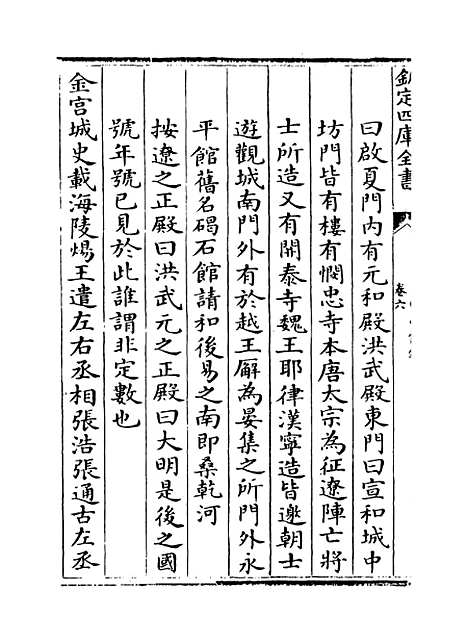 欽定四庫全書
卷六
曰啟夏門內有元和殿洪武殿東門曰宣和城中
坊門皆有樓有憫忠寺本唐太宗為征遼陣亡將
士所造又有開泰寺魏王耶律漢寧造皆邀朝士
遊觀城南門外有於越王廨為宴集之所門外永
平館舊名碣石館請和後易之南即桑乾河
按遼之正殿曰洪武元之正殿曰大明是後之國
號年號已見於此誰謂非定數也
金宮城史載海陵煬王遣左右丞相張浩張通古左丞